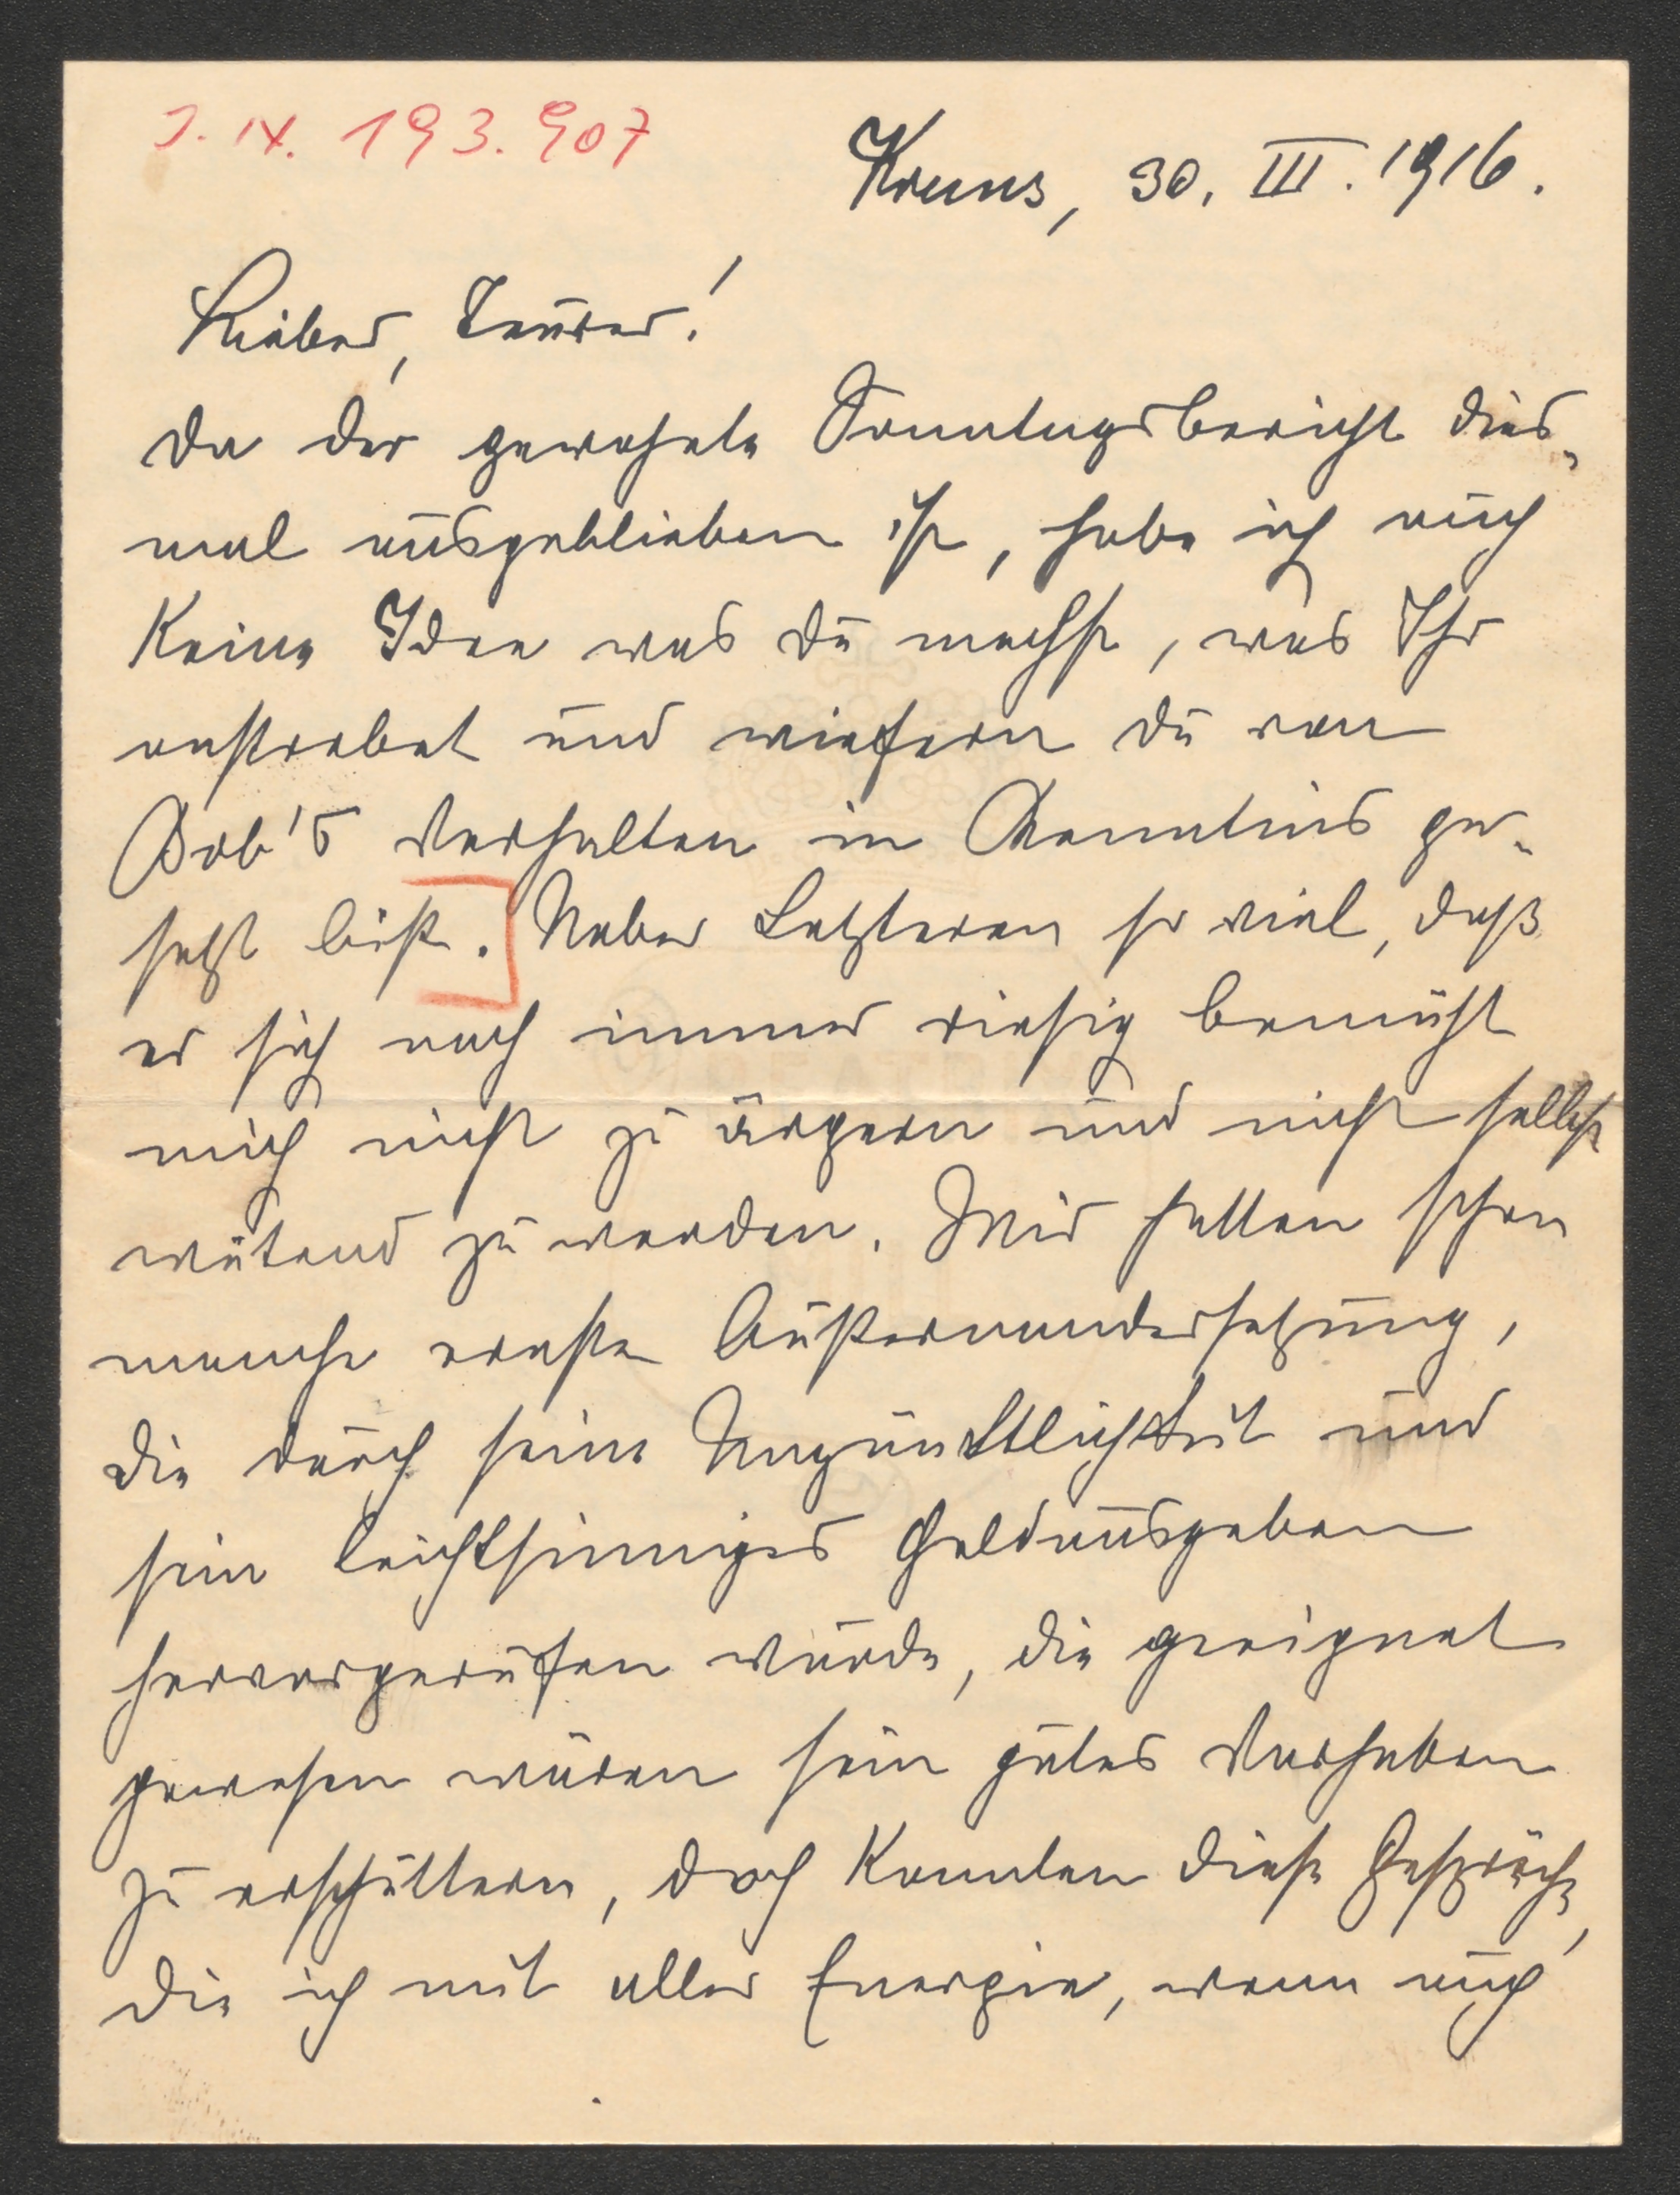 J. N. 193.907
Krems, 30. III. 1916.
Lieber, Teurer!
Da der gewohnte Sonntagsbericht dies-
mal ausgeblieben ist, habe ich auch
keine Idee was du machst, was Ihr
anstrebet und wiefern du von
Bob's Verhalten in Kenntnis ge-
setzt bist. Ueber Letzteren so viel, daß
er sich noch immer riesig bemüht
mich nicht zu ärgern und nicht selbst
wütend zu werden. Wir hatten schon
manche ernste Auseinandersetzung,
die durch seine Unpünktlichkeit und
sein leichtsinniges Geldausgeben
hervorgerufen wurde, die geeignet
gewesen wären sein gutes Vorhaben
zu erschüttern, doch konnten diese Gespräche,
die ich mit aller Energie, wenn auch